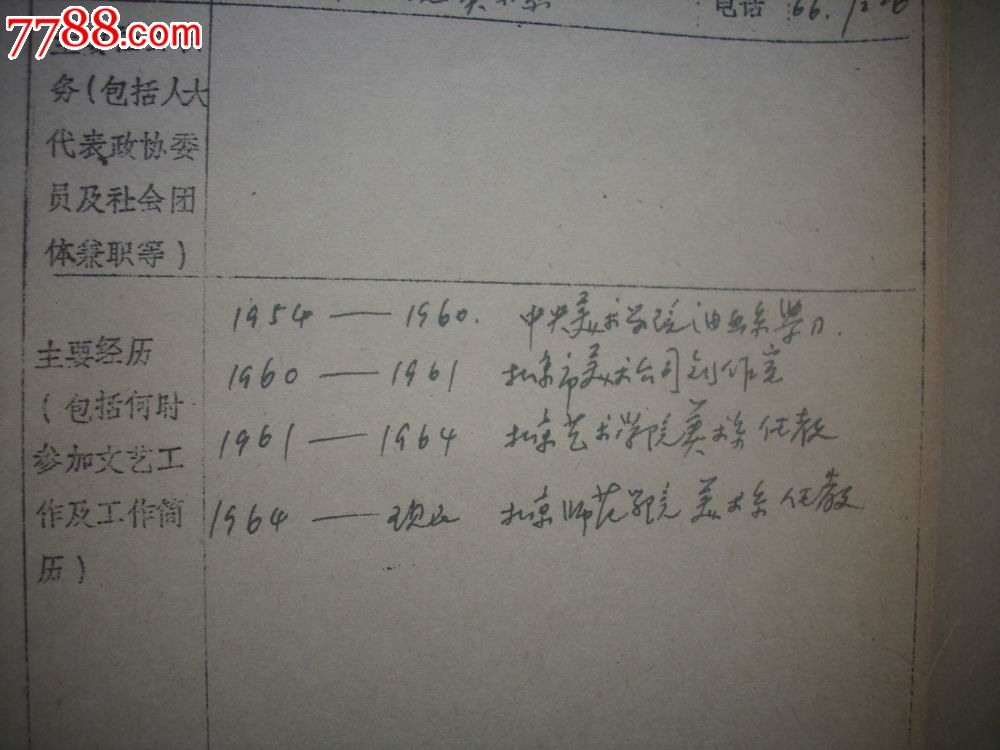 7788.com
收藏热线
电话 66.
务(包括人大
代表政协委
员及社会团
体兼职等)
主要经历
(包括何时
参加文艺工
作及工作简
历)
1954 — 1960. 中央美术学院油画系学习.
1960 — 1961 北京市美术公司创作室
1961 — 1964 北京艺术学院美术系任教
1964 — 现在 北京师范学院美术系任教